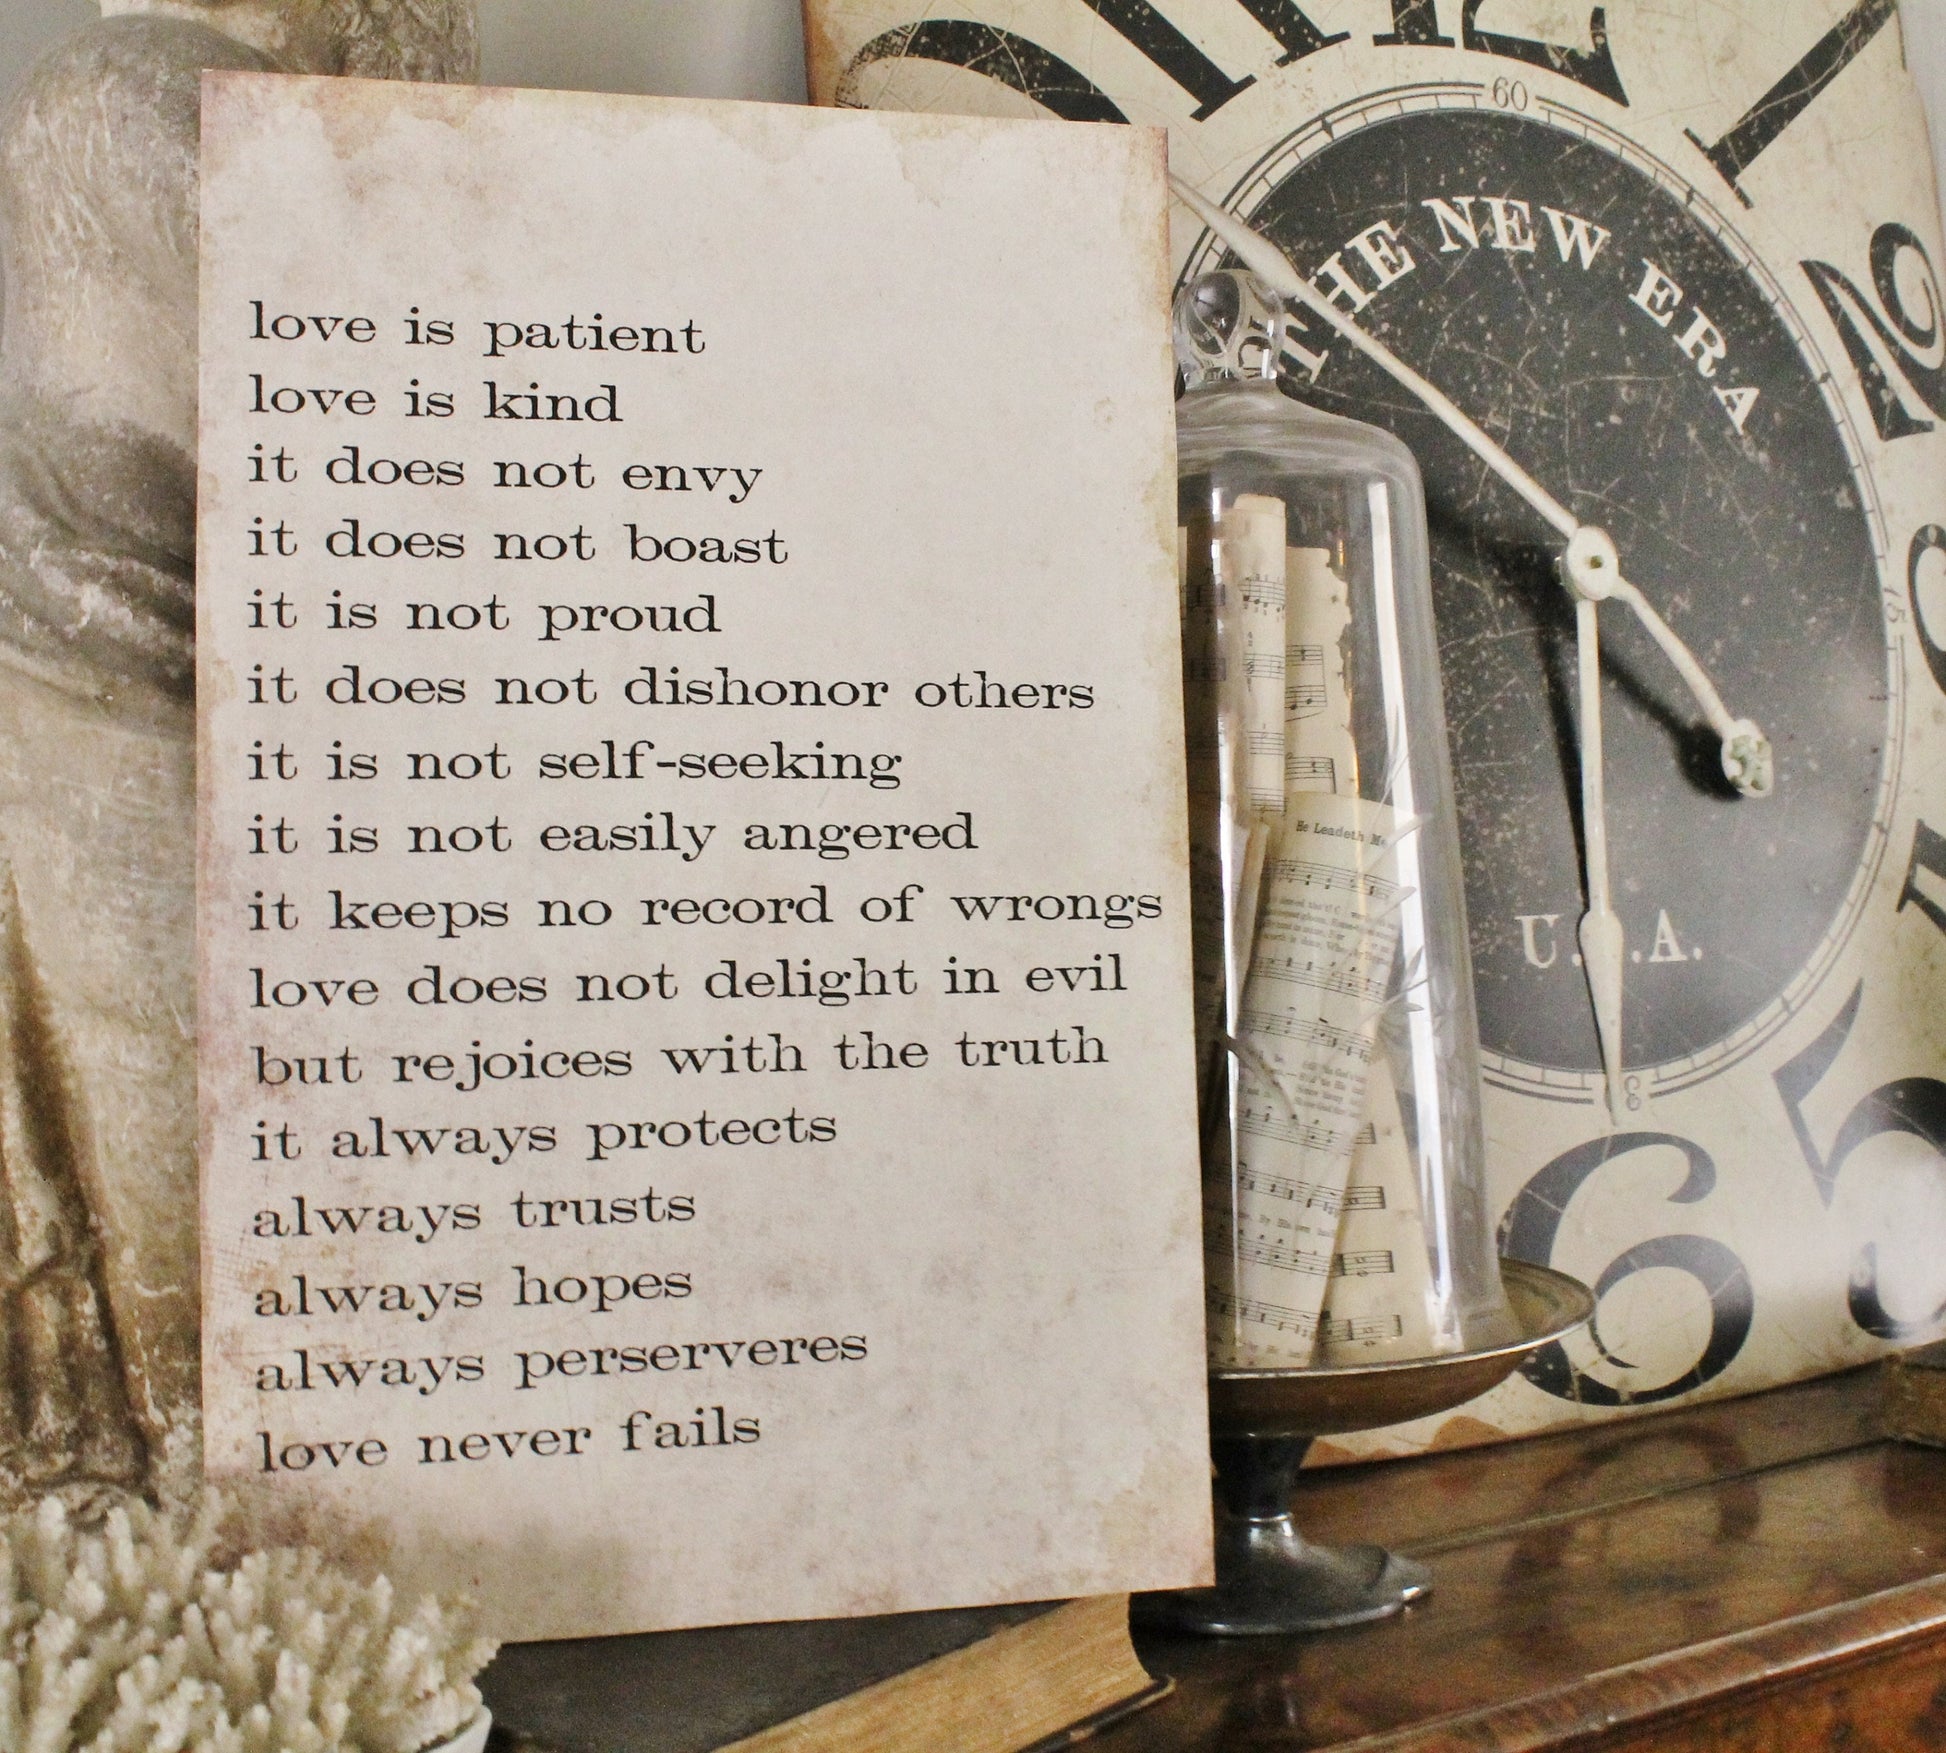 love is patient
love is kind
it does not envy
it does not boast
it is not proud
it does not dishonor others
it is not self-seeking
it is not easily angered
it keeps no record of wrongs
love does not delight in evil
but rejoices with the truth
it always protects
always trusts
always hopes
always perserveres
love never fails
12
1
2
60
THE NEW ERA
15
U. .A.
5
6
He Leadeth